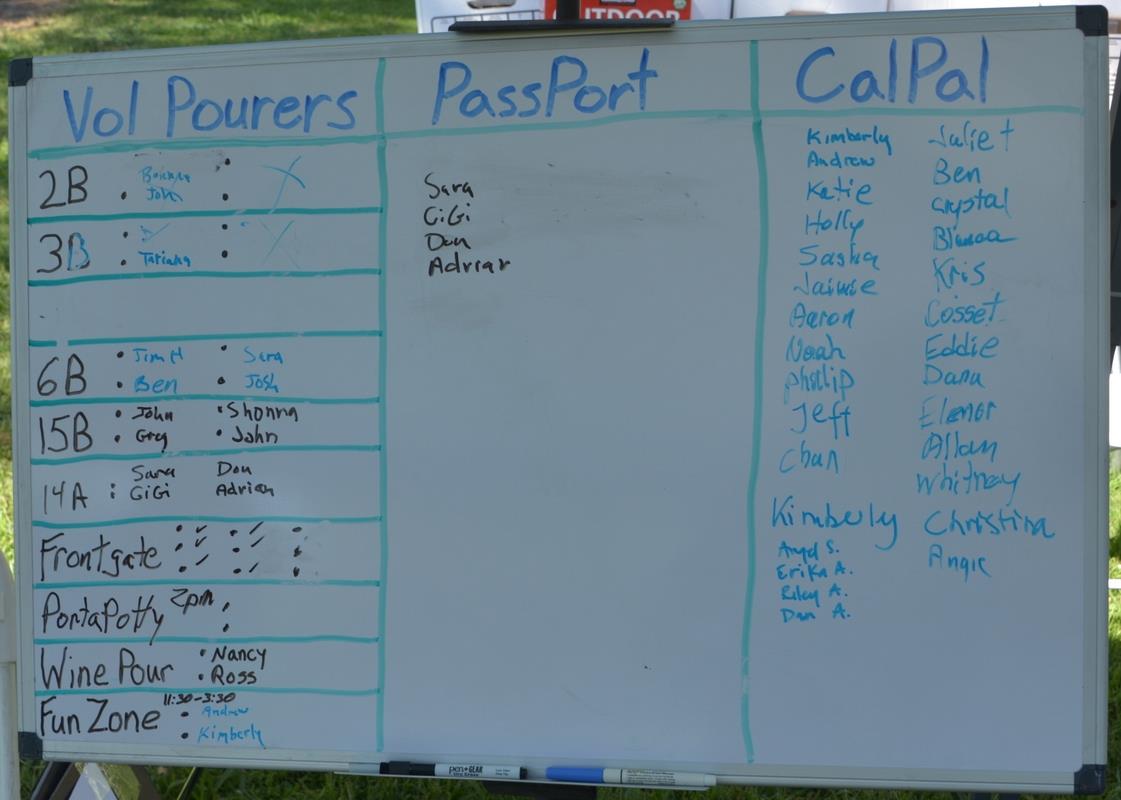 OUTDOOR
Vol Pourers
2B
John
3B
Tatiana
6B
Jim H
Sara
Ben
Josh
15B
John
Shonna
Greg
John
14A
Sara
Don
GiGi
Adrian
Frontgate
PortaPotty 2pm
Wine Pour
Nancy
Ross
Fun Zone
11:30-3:30
Andrew
Kimberly
PassPort
Sara
GiGi
Don
Adrian
CalPal
Kimberly
Andrew
Katie
Holly
Sasha
Jaimie
Aaron
Noah
Phillip
Jeff
Chan
Kimberly
Erika A.
Riley A.
Dan A.
Juliet
Ben
Crystal
Kris
Cosset
Eddie
Dana
Elenor
Allan
Whitney
Christina
Angie
pen+GEAR